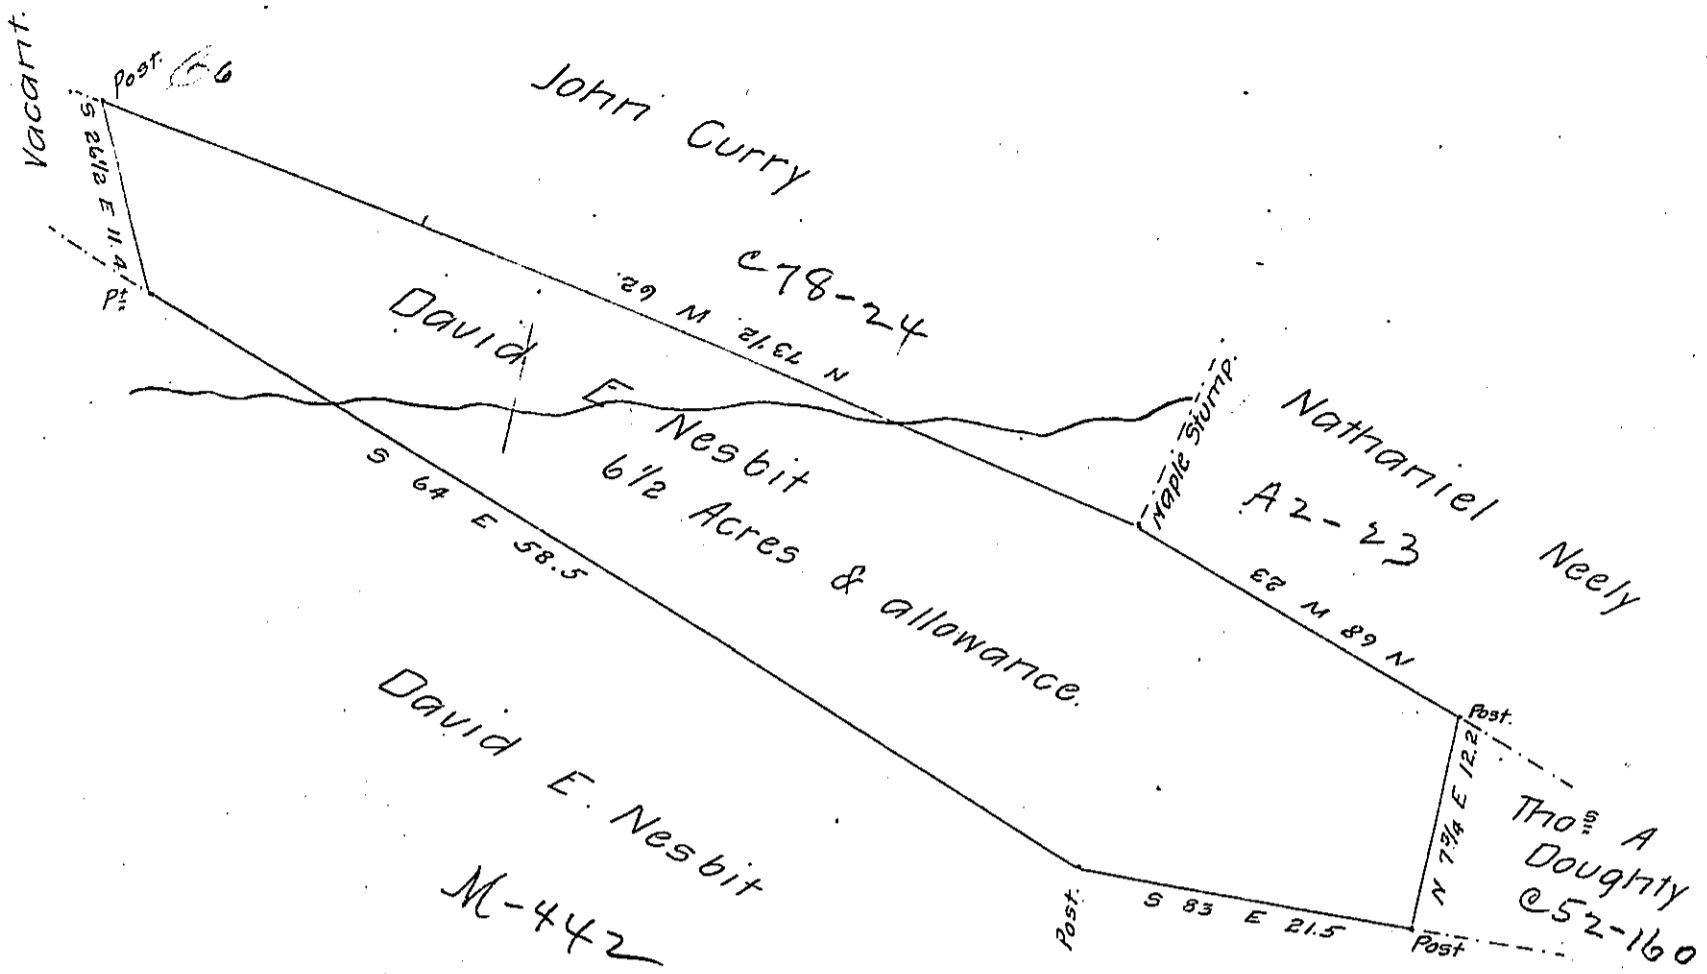 Vacant.
Post. 66
John Curry
C78-24
S 26 1/2 E 11.4
Pt
N 73 1/2 W 62.
David E Nesbit
6 1/2 Acres & allowance.
Maple Stump.
Nathaniel Neely
A2-23
N 68 W 23
S 64 E 58.5
Post.
N 7 3/4 E 12.2
Thos A
Doughty
C52-160
David E. Nesbit
M-442
Post.
S 83 E 21.5
Post